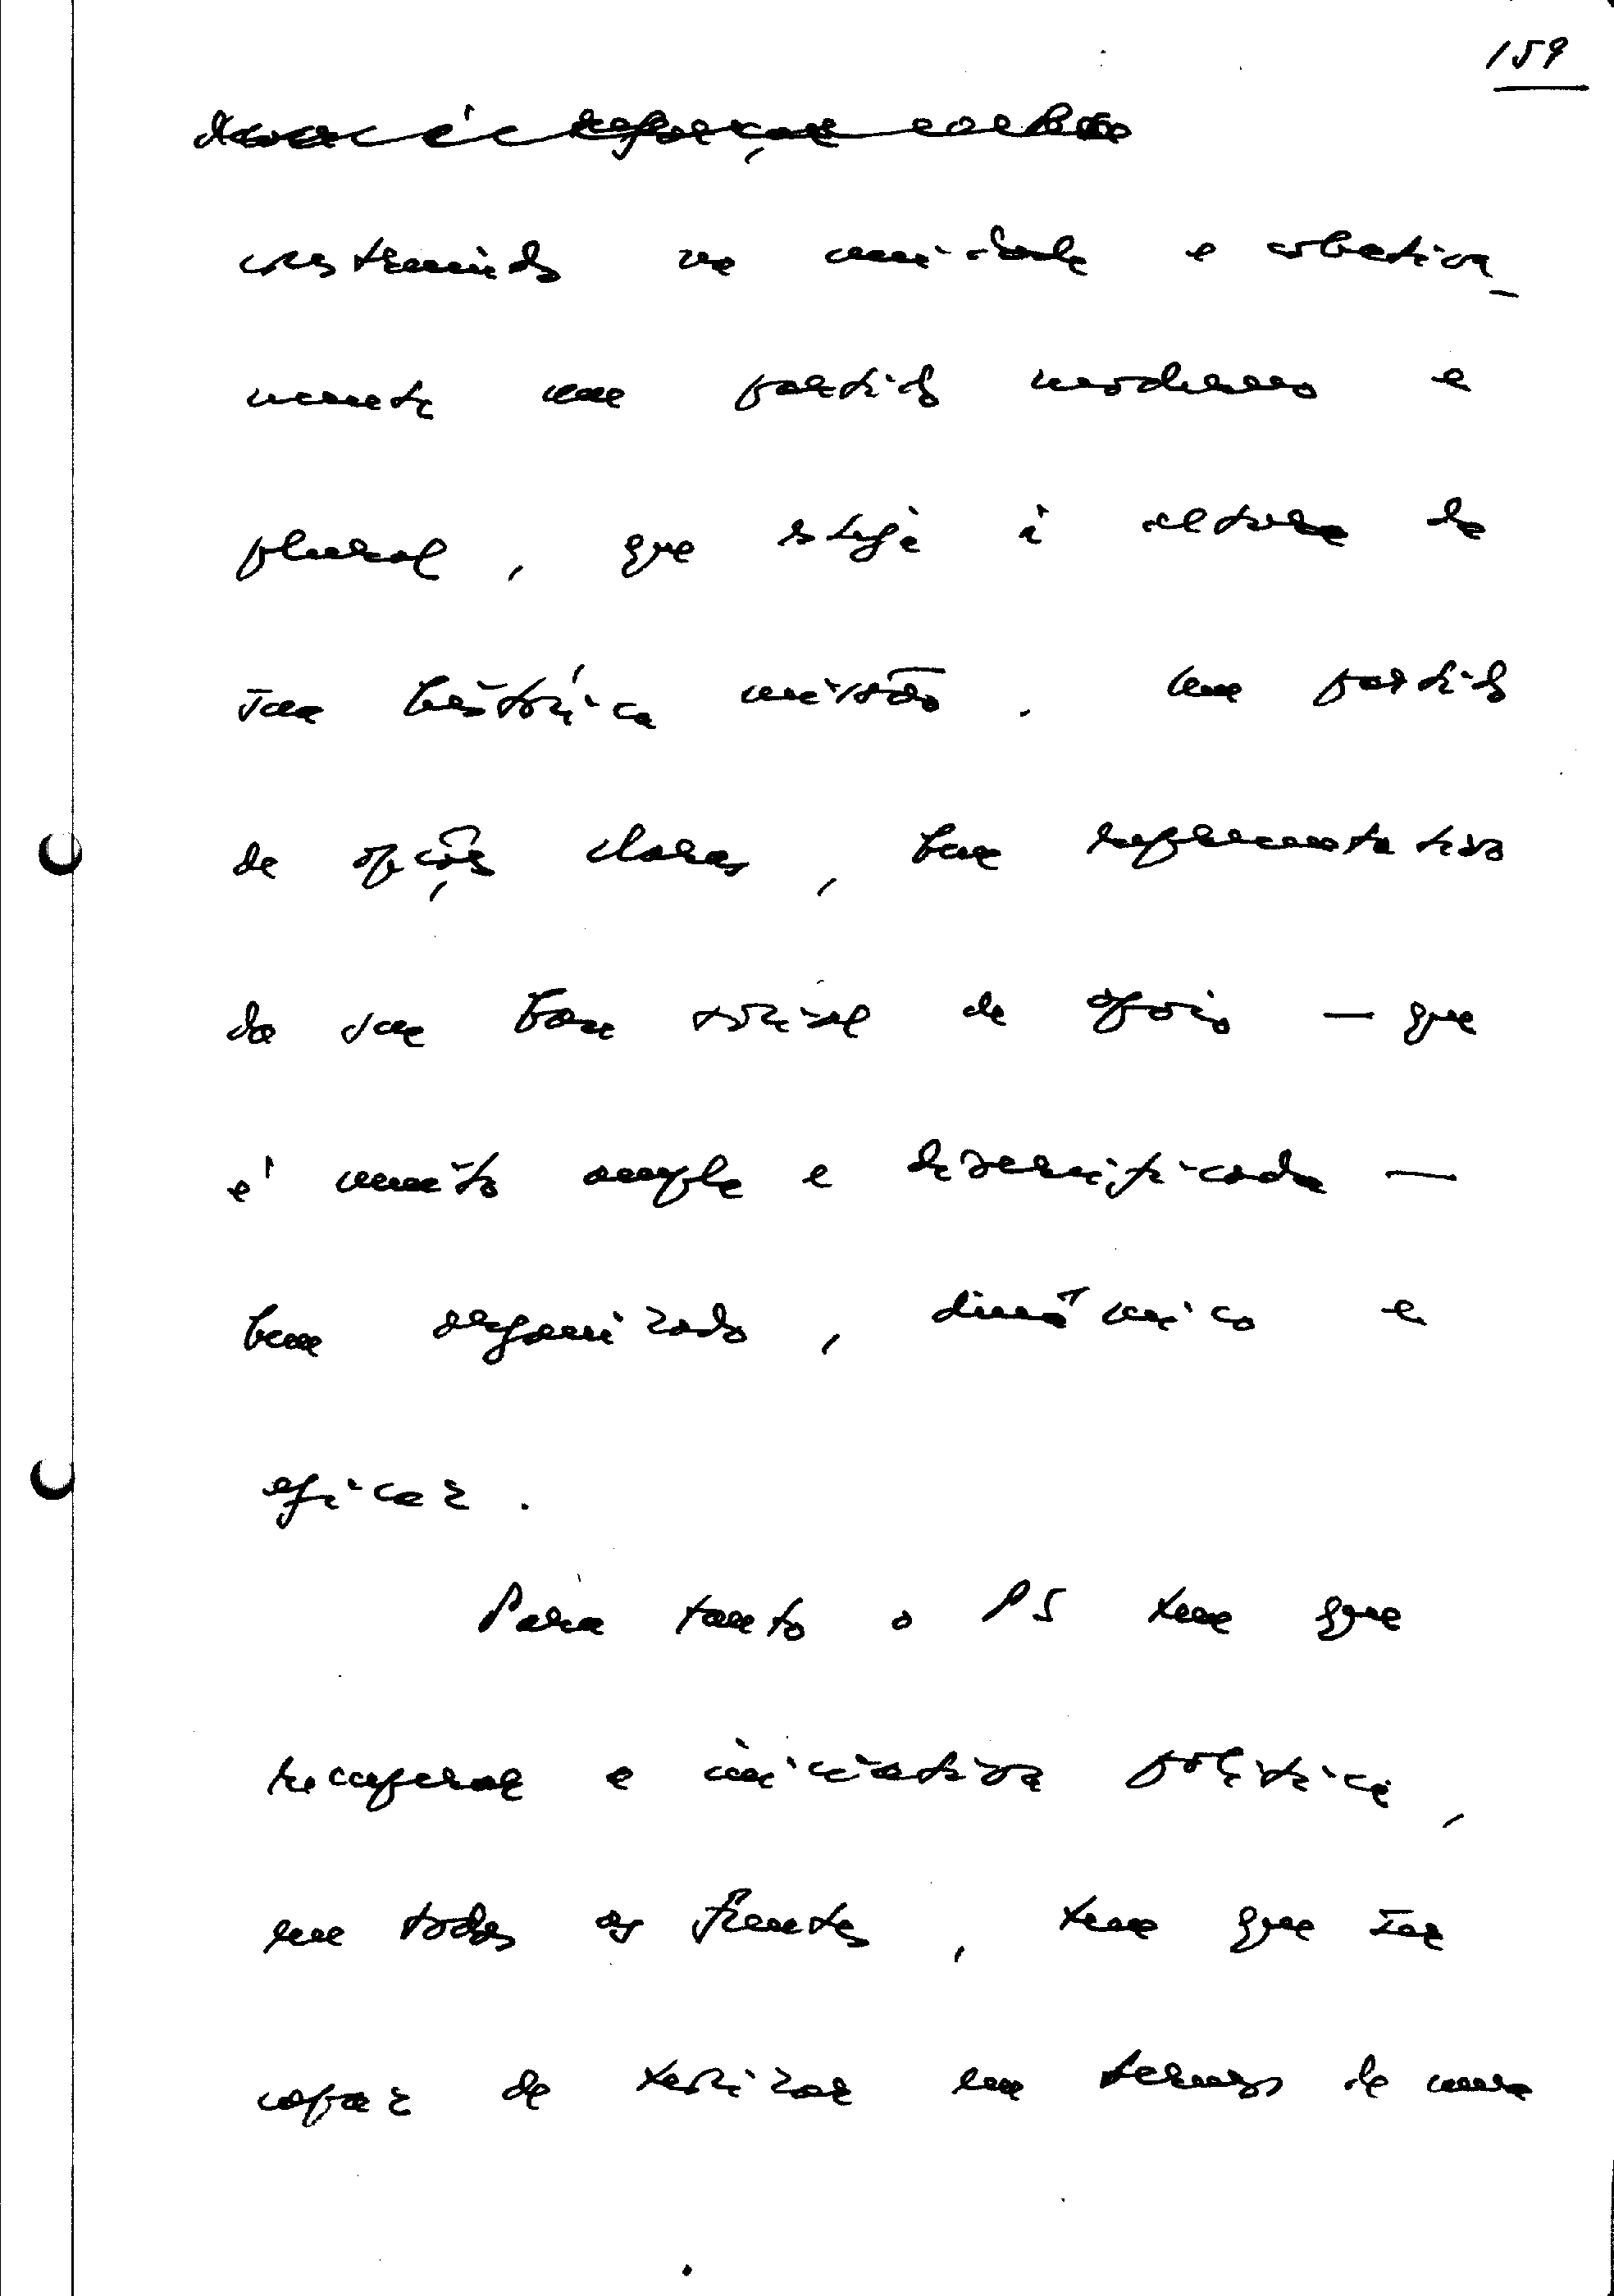 159
construindo na unidade e colectiva-
mente um partido moderno e
plural, que esteja à altura da
sua histórica missão. Um partido
de opções claras, bem representativo
da sua base social de apoio — que
é muito ampla e diversificada —
bem organizado, dinâmico e
eficaz.
Para tanto o PS tem que
recuperar a iniciativa política,
em todas as frentes, tem que ser
capaz de teorizar em termos de uma